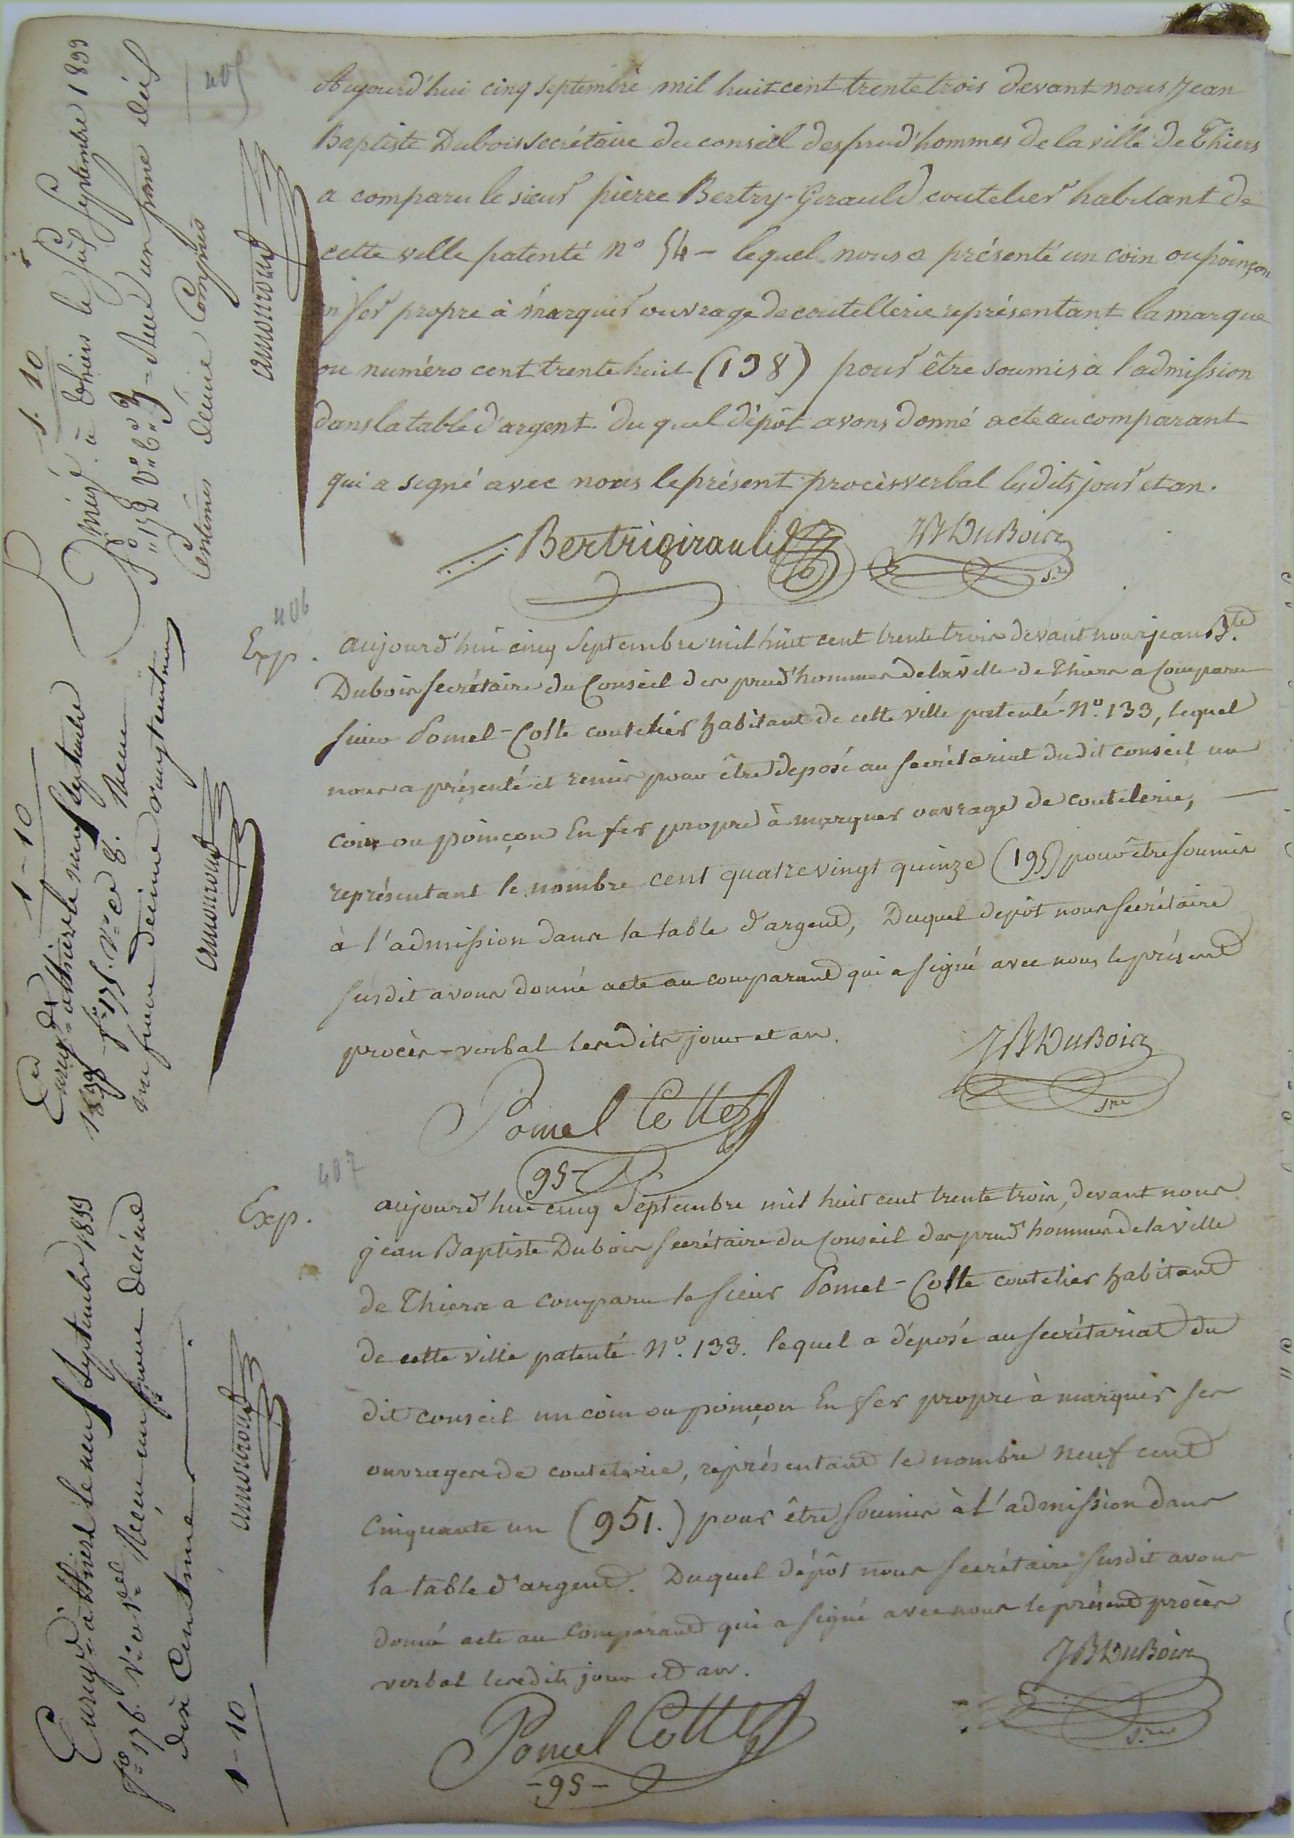 405
Aujourd'hui cinq septembre mil huit cent trente trois devant nous Jean
Baptiste Dubois secrétaire du conseil des prud'hommes de la ville de Thiers
a comparu le sieur pierre Bertry-Girauld coutelier habitant de
cette ville patenté n° 54 – lequel nous a présenté un coin ou poinçon
en fer propre à marquer ouvrage de coutellerie représentant la marque
ou numéro cent trente huit (138) pour être soumis a l'admission
dans la table d'argent. du quel dépôt avons donné acte au comparant
qui a signé avec nous le présent procès verbal lesdits jour et an.
Bertrigirauld JB DuBois
s.re
1. 10
à thiers le six Septembre 1833
f° 172 v° c 3 – Reçu un franc dix
Centimes décime Compris
amouroux
406
Exp. aujourd'hui cinq Septembre mil huit cent trente trois devant nous jean B.te
Dubois secrétaire du Conseil des prud'hommes de la ville de Thiers a Comparu
sieur Pomel-Cotte coutelier habitant de cette ville patenté N°. 133, lequel
nous a présenté et remis pour être déposé au secrétariat dudit conseil un
coin ou poinçon En fer propre à marquer ouvrage de coutelerie, —
représentant le nombre cent quatre vingt quinze (195) pour être soumis
à l'admission dans la table d'argent, Duquel depôt nous secrétaire
susdit avons donné acte au comparant qui a signé avec nous le présent
procès-verbal lesdits jour et an.
JB DuBois
s.re
Pomel Cotte
95-
1-10
Enreg.é à thiers le neuf Septembre
1833 f° 175. v° c 8. Reçu
un franc décime
amouroux
407
Exp. aujourd'hui cinq Septembre mil huit cent trente trois, devant nous
jean Baptiste Dubois secrétaire du Conseil des prud'hommes de la ville
de Thiers a comparu le sieur Pomel-Cotte coutelier habitant
de cette ville patenté N°. 133. lequel a déposé au secrétariat du
dit conseil un coin ou poinçon En fer propre à marquer ses
ouvrages de coutelerie, représentant le nombre neuf cent
Cinquante un (951.) pour être soumis à l'admission dans
la table d'argent. Duquel dépôt nous secrétaire susdit avons
donné acte au comparant qui a signé avec nous le présent procès
verbal lesdits jour et an.
JB DuBois
s.re
Pomel Cotte
-95-
Enreg.é à thiers le neuf Septembre 1833
f° 176 v° Reçu un franc décime
dix Centimes
amouroux
1-10